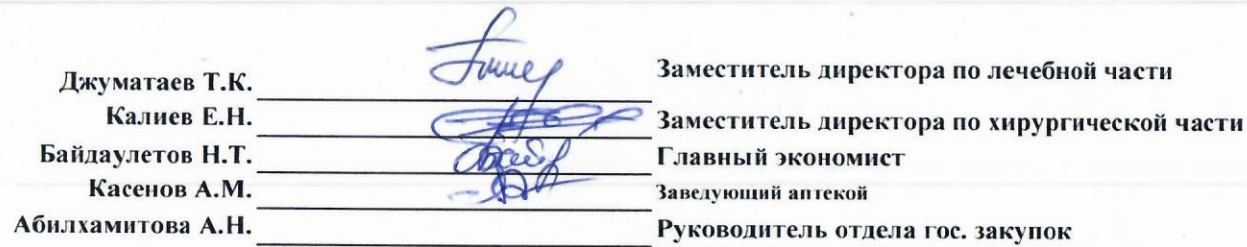 Джуматаев Т.К. Заместитель директора по лечебной части
Калиев Е.Н. Заместитель директора по хирургической части
Байдаулетов Н.Т. Главный экономист
Касенов А.М. Заведующий аптекой
Абилхамитова А.Н. Руководитель отдела гос. закупок